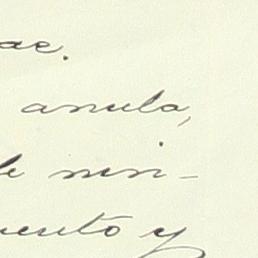 ae.
anula,
de nin-
uento y